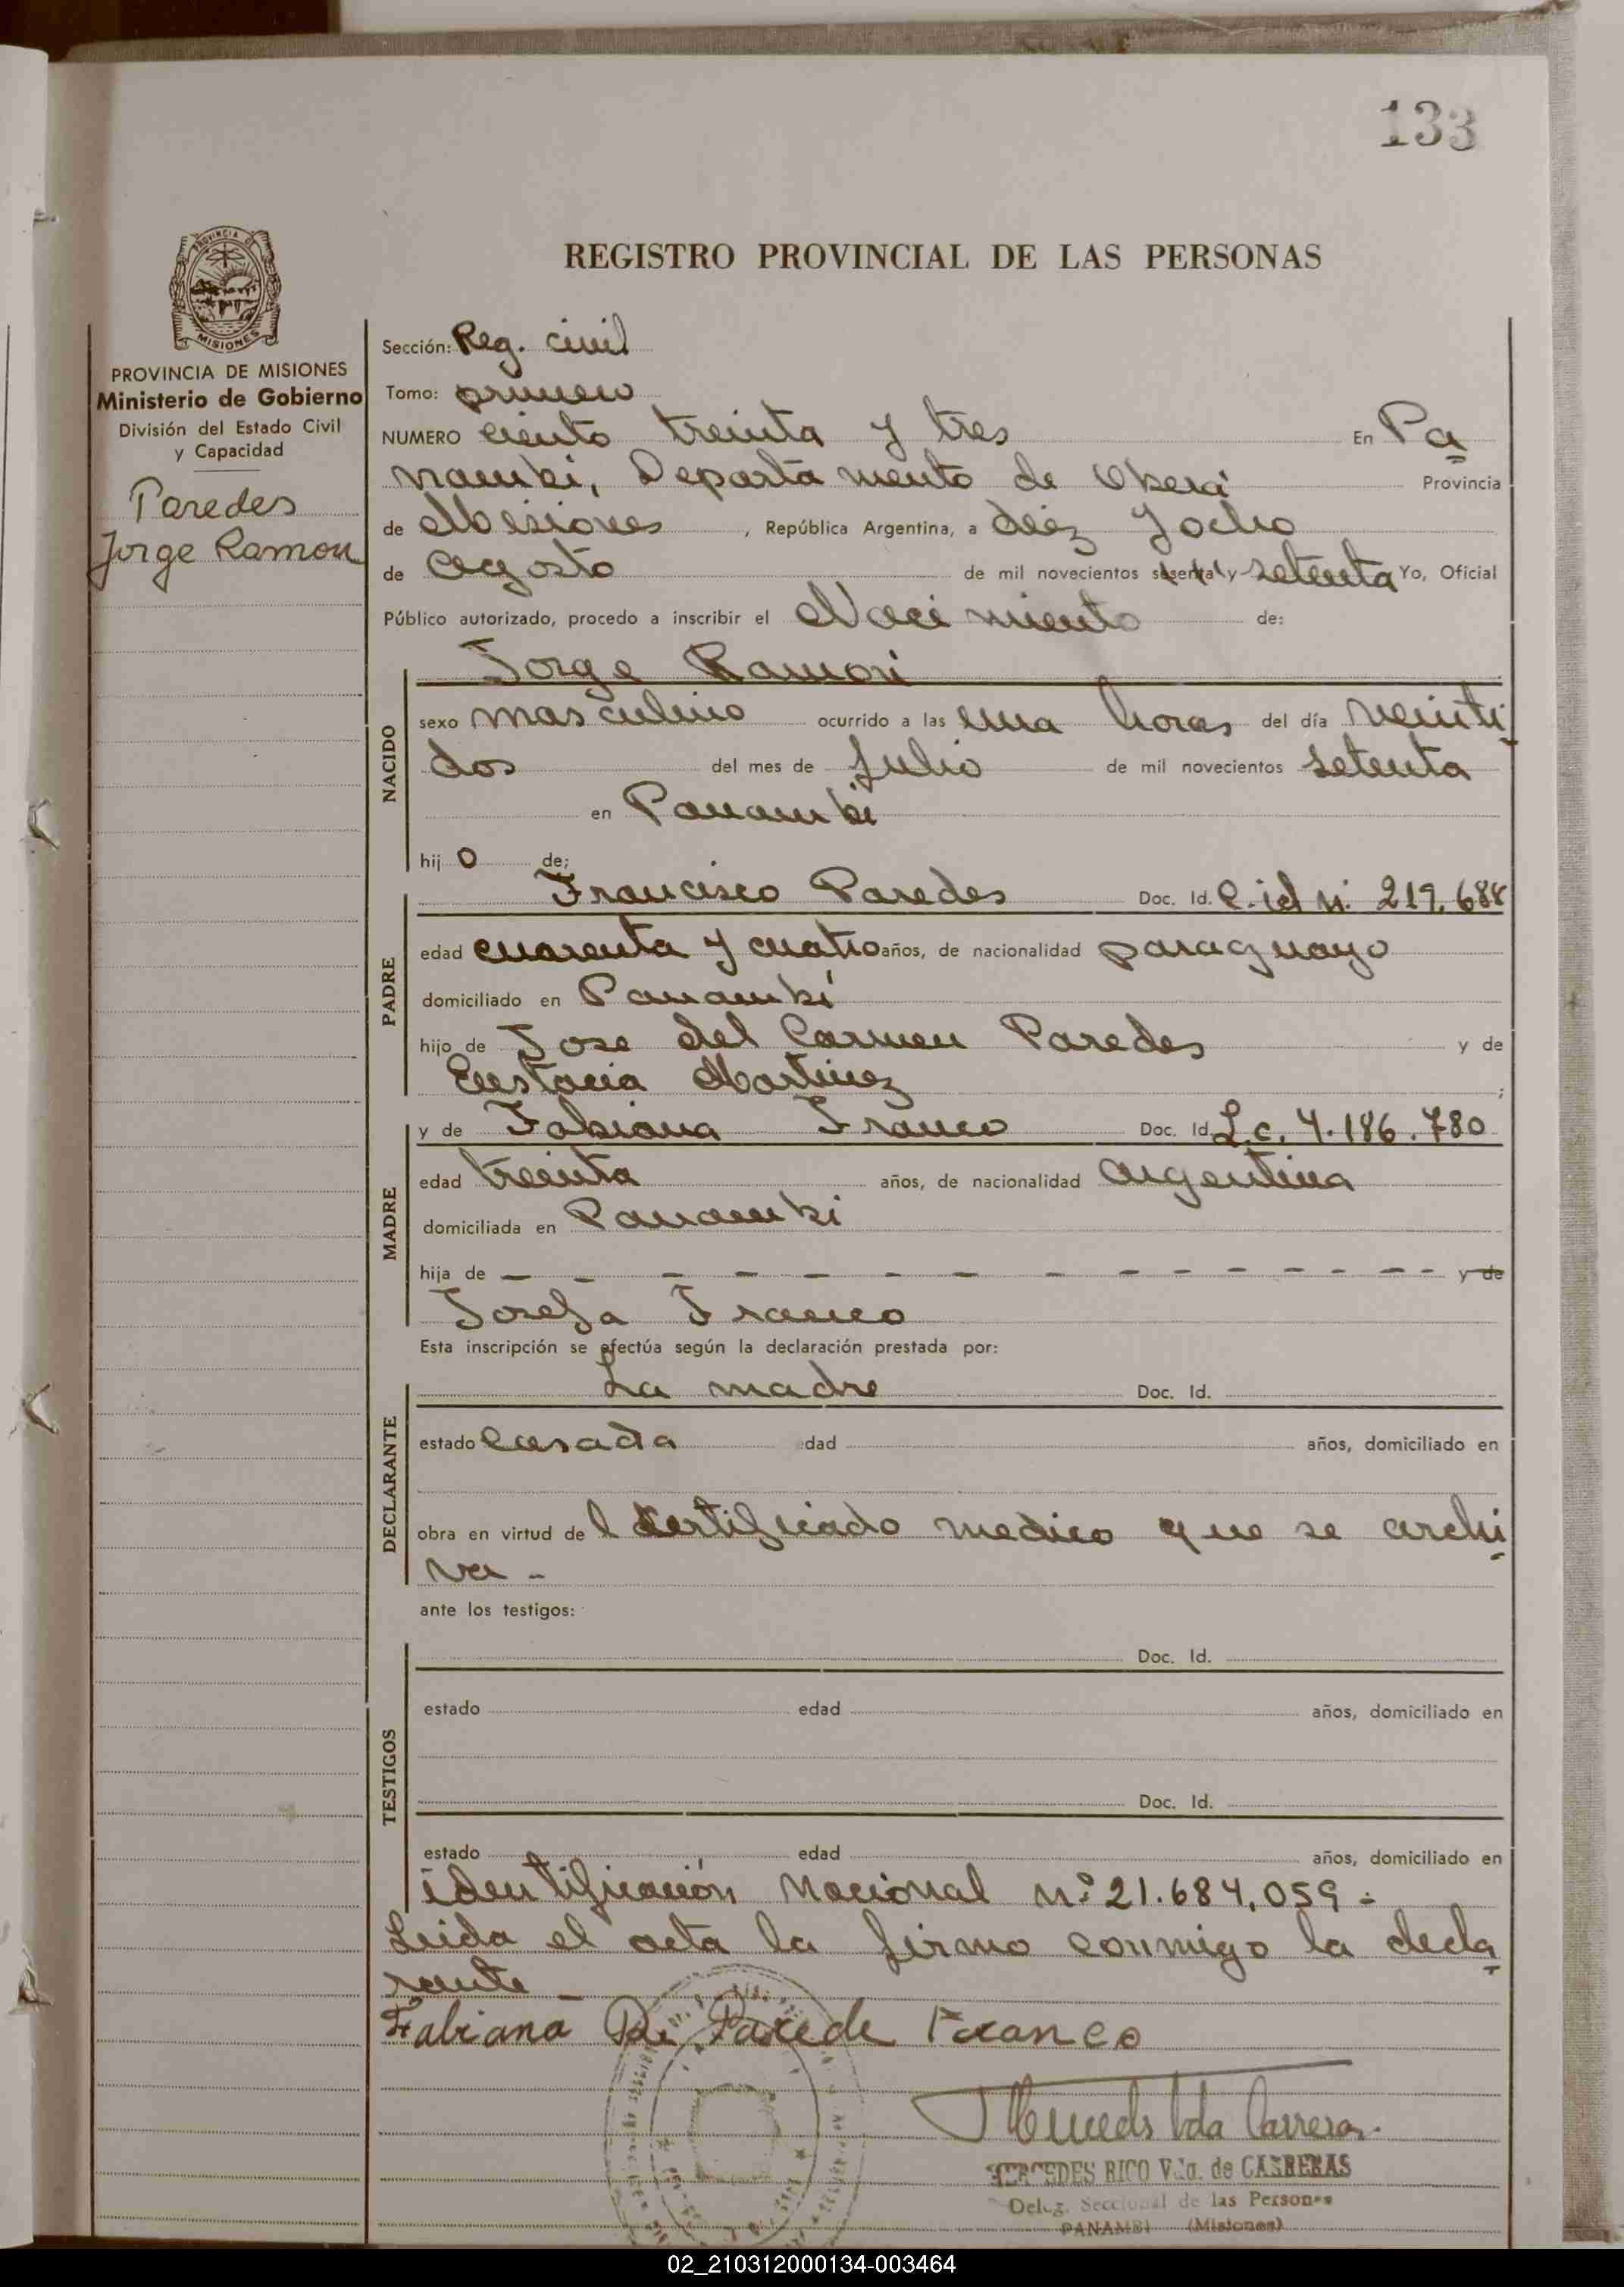 133
REGISTRO PROVINCIAL DE LAS PERSONAS
PROVINCIA DE
MISIONES
PROVINCIA DE MISIONES
Ministerio de Gobierno
División del Estado Civil
y Capacidad
Paredes
Jorge Ramon
Sección: Reg. civil
Tomo: primero
NUMERO ciento treinta y tres En Pa
nambi, Departamento de Oberá Provincia
de Misiones, República Argentina, a diez y ocho
de Agosto de mil novecientos sesenta y setenta Yo, Oficial
Público autorizado, procedo a inscribir el Nacimiento de:
NACIDO
Jorge Ramon
sexo masculino ocurrido a las una horas del día veinti
dos del mes de Julio de mil novecientos setenta
en Panambi
hijo de;
PADRE
Francisco Paredes Doc. Id. C. id n. 219.688
edad cuarenta y cuatro años, de nacionalidad paraguayo
domiciliado en Panambí
hijo de Jose del Carmen Paredes y de
Eustacia Martinez ;
MADRE
y de Fabiana Franco Doc. Id. L.c. 4.186.780
edad treinta años, de nacionalidad Argentina
domiciliada en Panambi
hija de - - - - - - - - - - - - - - y de
Josefa Franco
Esta inscripción se efectúa según la declaración prestada por:
DECLARANTE
La madre Doc. Id.
estado casada edad años, domiciliado en
obra en virtud del certificado medico que se archi
va -
ante los testigos:
TESTIGOS
Doc. Id.
estado edad años, domiciliado en
Doc. Id.
estado edad años, domiciliado en
identificación Nacional n° 21.684.059 -
Leida el acta la firmo conmigo la decla
rante -
Fabiana De Parede Franco
MERCEDES RICO Vda. de CARRERAS
Deleg. Seccional de las Personas
PANAMBI (Misiones)
02_210312000134-003464